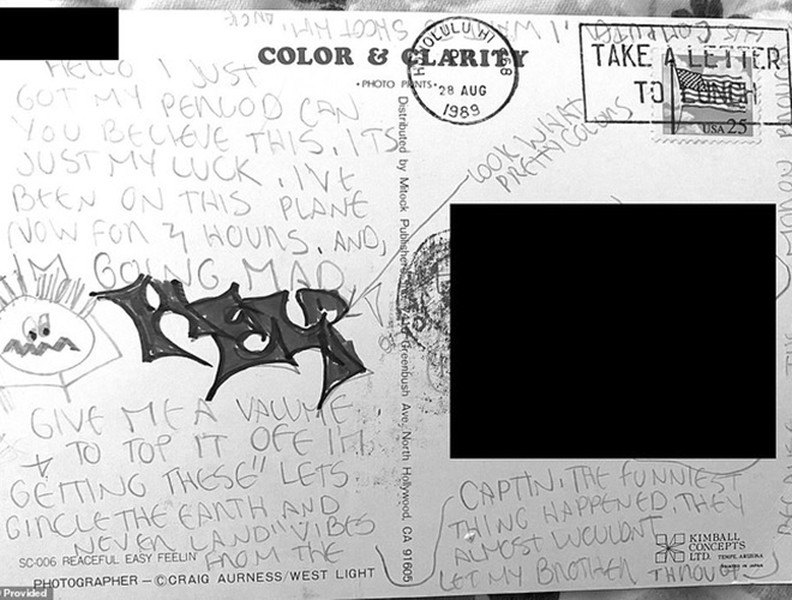 HELLO I JUST
GOT MY PERIOD CAN
YOU BECIEVE THIS. ITS
JUST MY LUCK. I'VE
BEEN ON THIS PLANE
NOW FOR 4 HOURS. AND,
I'M GOING MAD
GIVE ME A VALUME
+ TO TOP IT OFF I'M
GETTING THESE" LETS
CIRCLE THE EARTH AND
NEVER LAND" VIBES
FROM THE
CAPTIN, THE FUNNIEST
THING HAPPENED, THEY
ALMOST WOULDNT
LET MY BROTHER THROUGH
LOOK WHAT
PRETTY COLORS
COLOR & CLARITY
•PHOTO PRINTS•
HONOLULU HI 968
28 AUG
1989
TAKE A LETTER
TO LUNCH
USA 25
Distributed by Mitock Publishers Greenbush Ave., North Hollywood, CA 91605
SC-006 REACEFUL EASY FEELIN'
PHOTOGRAPHER – ©CRAIG AURNESS/WEST LIGHT
KIMBALL
CONCEPTS
LTD. TEMPE, ARIZONA
PRINTED IN JAPAN
BECAUSE THE MORON
HIS COMPUTER
I WANT SHOOT HIM.
Provided